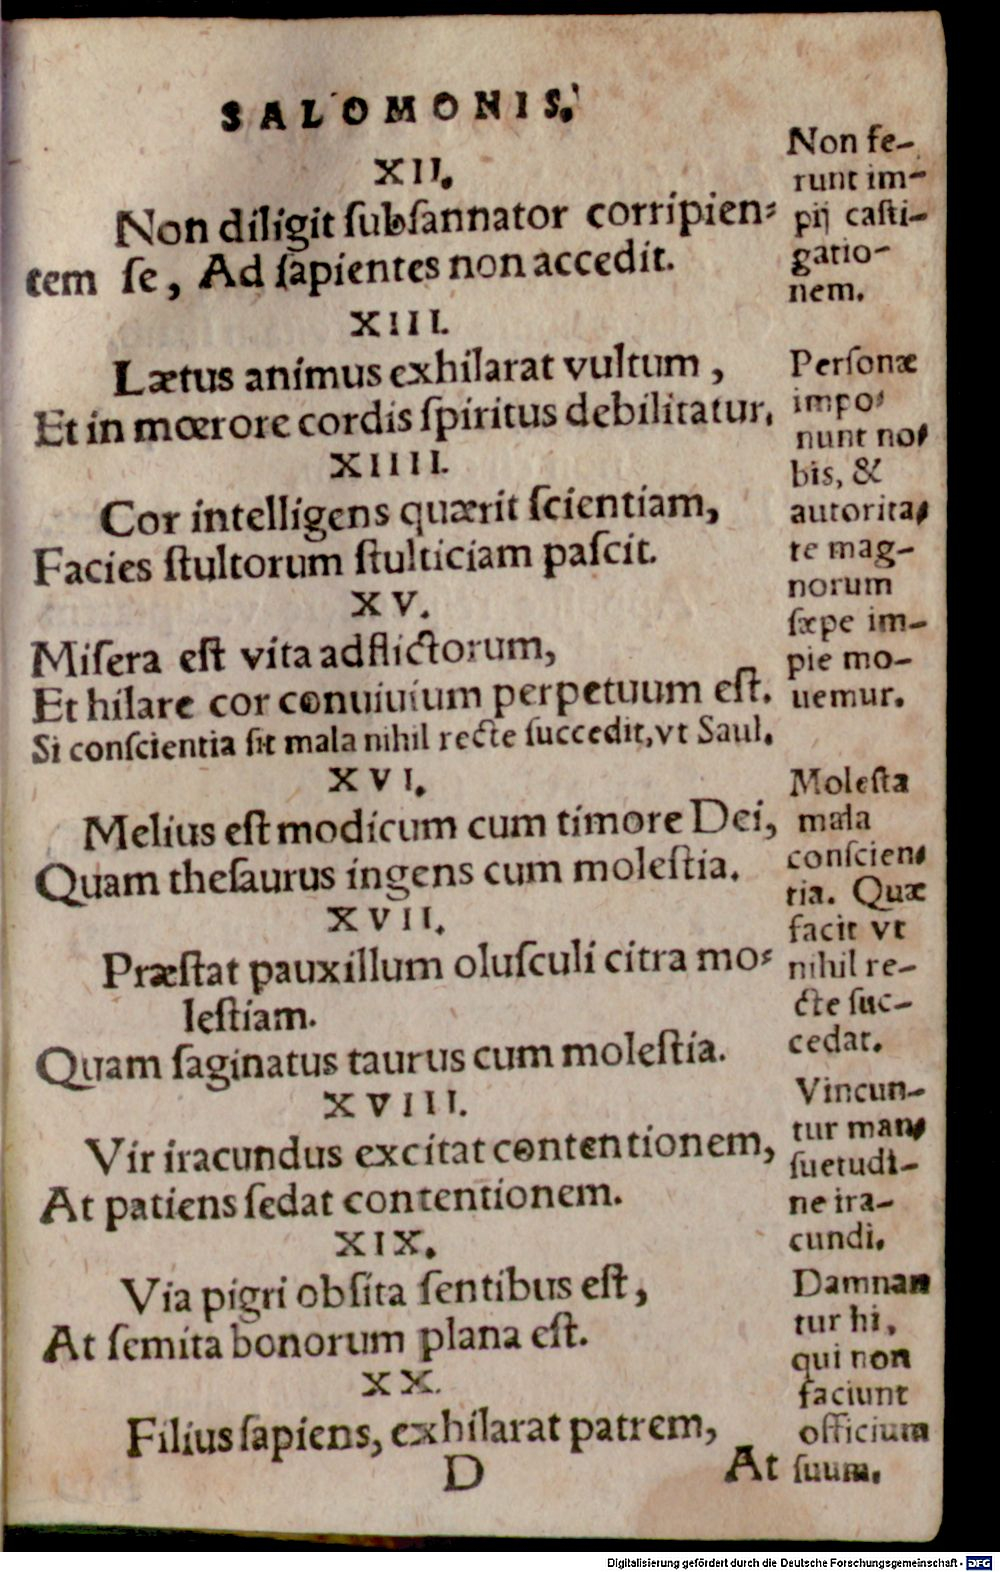 SALOMONIS.
XII.
Non diligit ſubſannator corripien-
tem ſe, Ad ſapientes non accedit.
XIII.
Lætus animus exhilarat vultum,
Et in mœrore cordis ſpiritus debilitatur.
XIIII.
Cor intelligens quærit ſcientiam,
Facies ſtultorum ſtulticiam paſcit.
XV.
Miſera eſt vita adflictorum,
Et hilare cor conuiuium perpetuum eſt.
Si conſcientia ſit mala nihil recte ſuccedit, vt Saul.
XVI.
Melius eſt modicum cum timore Dei,
Quam theſaurus ingens cum moleſtia.
XVII.
Præſtat pauxillum oluſculi citra mo-
leſtiam.
Quam ſaginatus taurus cum moleſtia.
XVIII.
Vir iracundus excitat contentionem,
At patiens ſedat contentionem.
XIX.
Via pigri obſita ſentibus eſt,
At ſemita bonorum plana eſt.
XX.
Filius ſapiens, exhilarat patrem,
D
At
Non fe-
runt im-
pij caſti-
gatio-
nem.
Perſonæ
impo-
nunt no-
bis, &
autorita-
te mag-
norum
ſæpe im-
pie mo-
uemur.
Moleſta
mala
conſcien-
tia. Quæ
facit vt
nihil re-
cte ſuc-
cedat.
Vincun-
tur man-
ſuetudi-
ne ira-
cundi.
Damnan
tur hi,
qui non
faciunt
officium
ſuum.
Digitalisierung gefördert durch die Deutsche Forschungsgemeinschaft - DFG